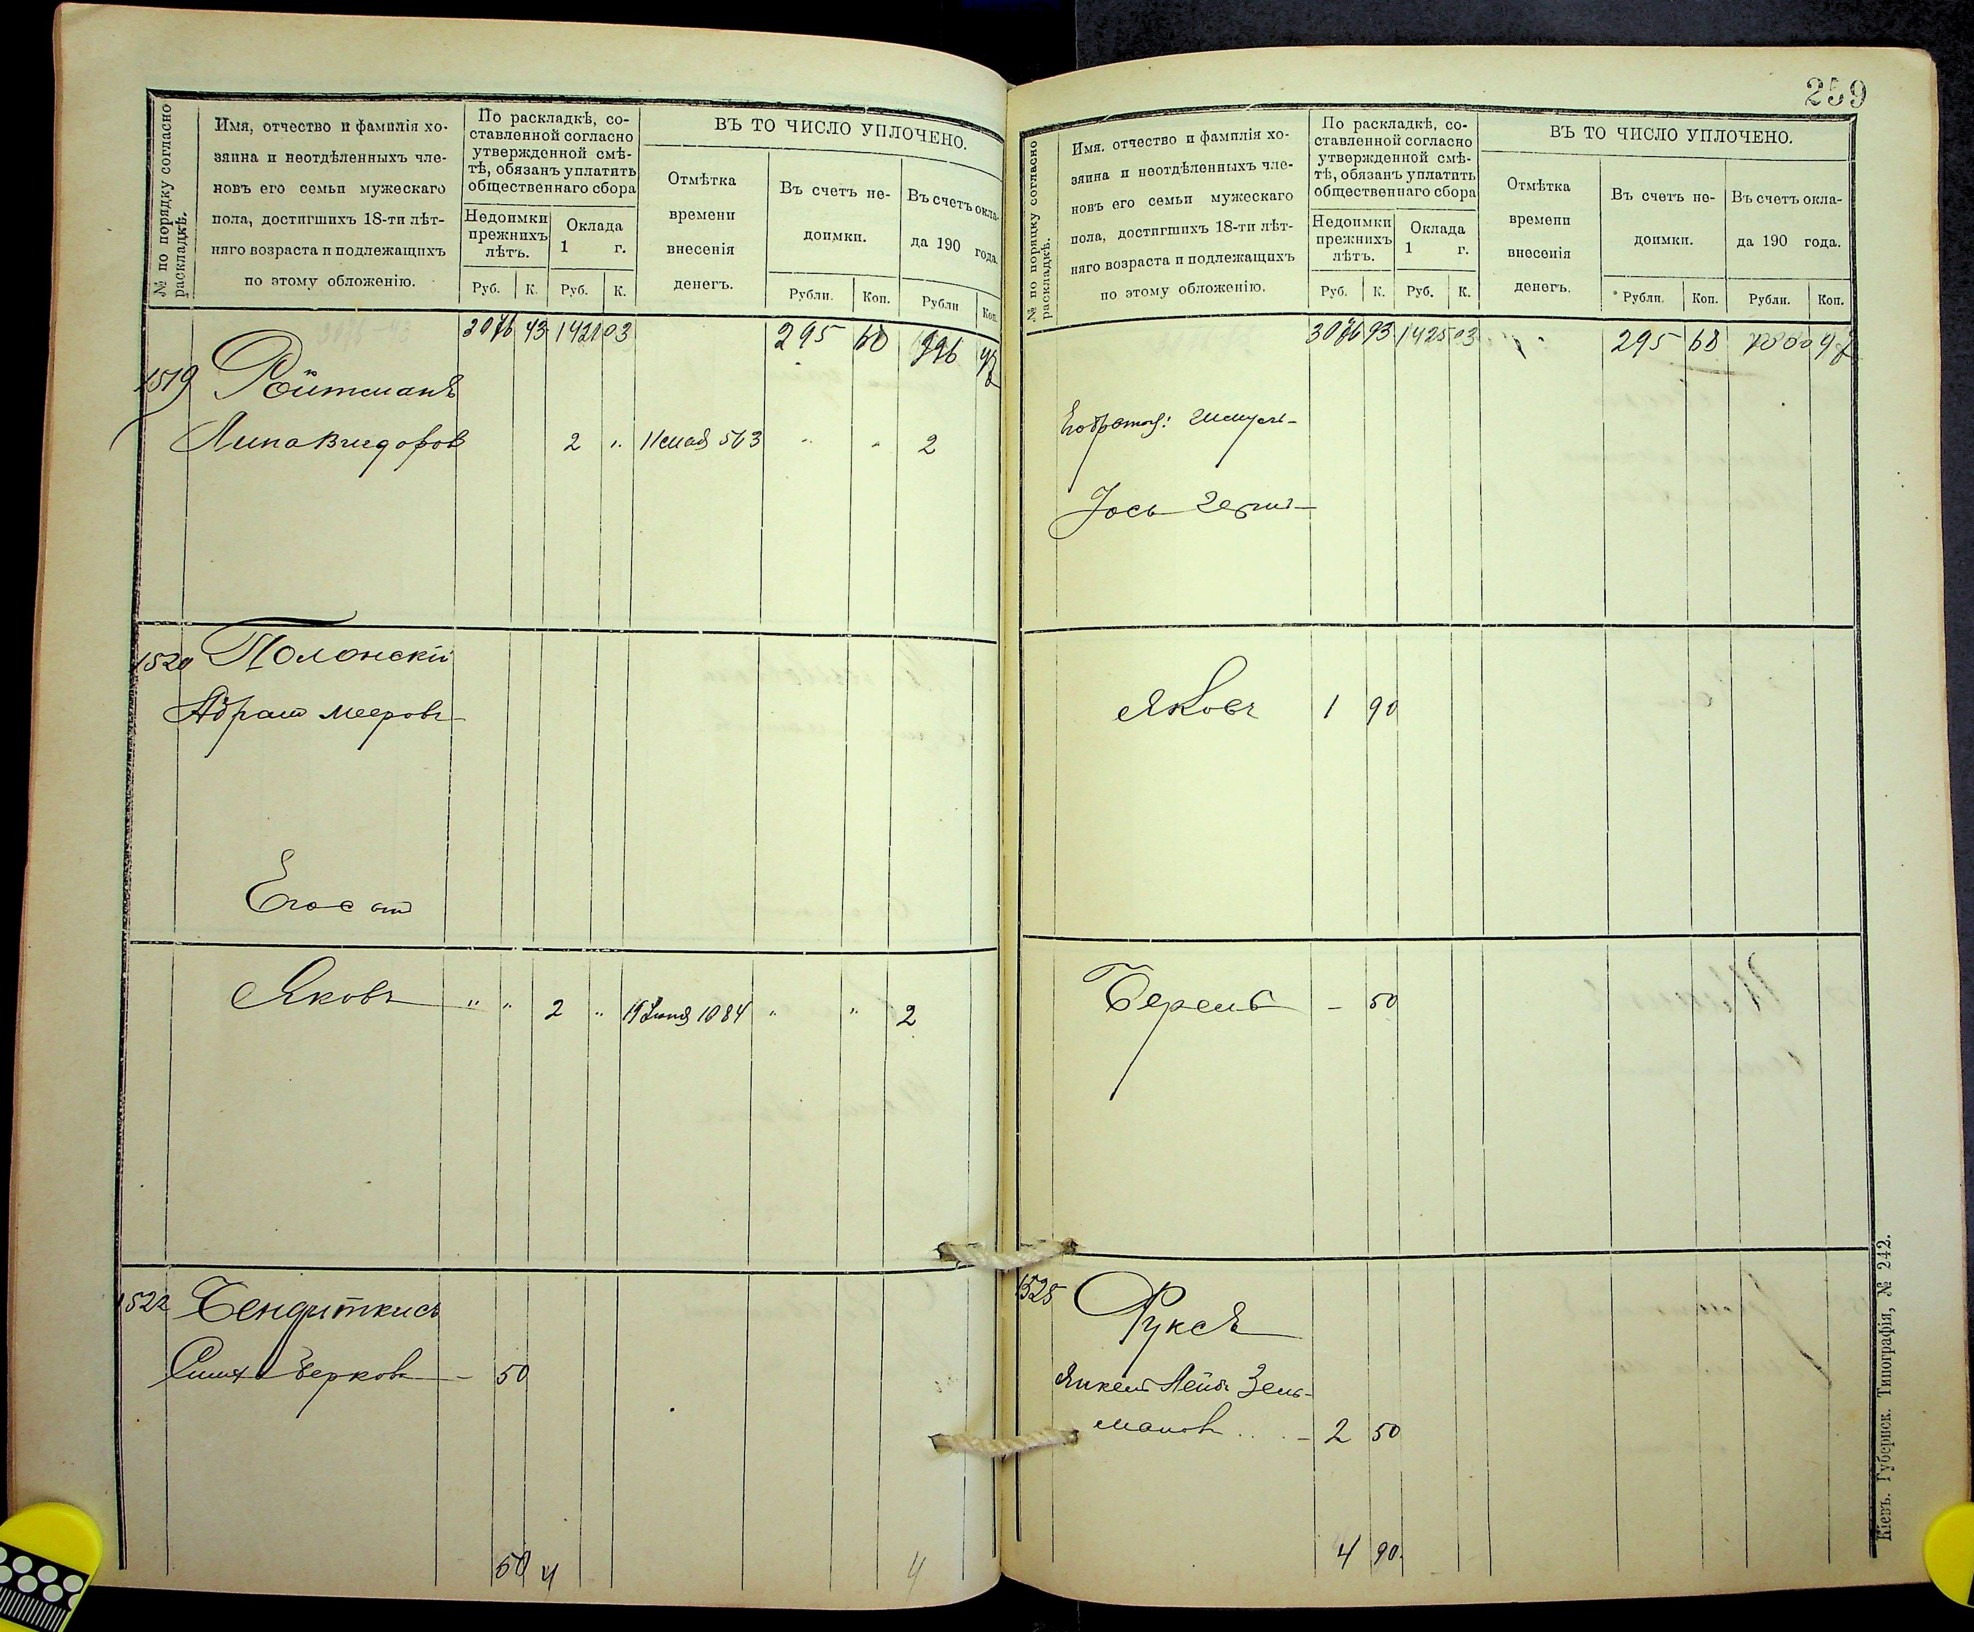 № по порядку согласно раскладкѣ.
Имя, отчество и фамилія хо-
зяина и неотдѣленныхъ чле-
новъ его семьи мужескаго
пола, достигшихъ 18-ти лѣт-
няго возраста и подлежащихъ
по этому обложенію.
По раскладкѣ, со-
ставленной согласно
утвержденной смѣ-
тѣ, обязанъ уплатить
общественнаго сбора
Недоимки
прежнихъ
лѣтъ.
Оклада
1 г.
Руб. К. Руб. К.
ВЪ ТО ЧИСЛО УПЛОЧЕНО.
Отмѣтка
времени
внесенія
денегъ.
Въ счетъ не-
доимки.
Рубли. Коп.
Въ счетъ окла-
да 190 года.
Рубли Коп.
3076 43 1421 03 295 68
1519 Ройтманъ
Липа Вигдоров 2 " 11 мая 563 " " 2
1520 Полонскій
Абрам Мееровъ
Его с
Яковъ " " 2 " 19 Іюня 1084 " " 2
1522 Бендиткисъ
Берков — 50
50 4 4
259
№ по порядку согласно раскладкѣ.
Имя, отчество и фамилія хо-
зяина и неотдѣленныхъ чле-
новъ его семьи мужескаго
пола, достигшихъ 18-ти лѣт-
няго возраста и подлежащихъ
по этому обложенію.
По раскладкѣ, со-
ставленной согласно
утвержденной смѣ-
тѣ, обязанъ уплатить
общественнаго сбора
Недоимки
прежнихъ
лѣтъ.
Оклада
1 г.
Руб. К. Руб. К.
ВЪ ТО ЧИСЛО УПЛОЧЕНО.
Отмѣтка
времени
внесенія
денегъ.
Въ счетъ не-
доимки.
Рубли. Коп.
Въ счетъ окла-
да 190 года.
Рубли. Коп.
3076 93 1425 03 295 68
Его брат: Шмуль
Іось
Яковъ 1 90
Берель — 50
1525 Руксъ
Янкель Лейб Зель-
манов — 2 50
4 90
Кіевъ. Губернск. Типографія, № 242.